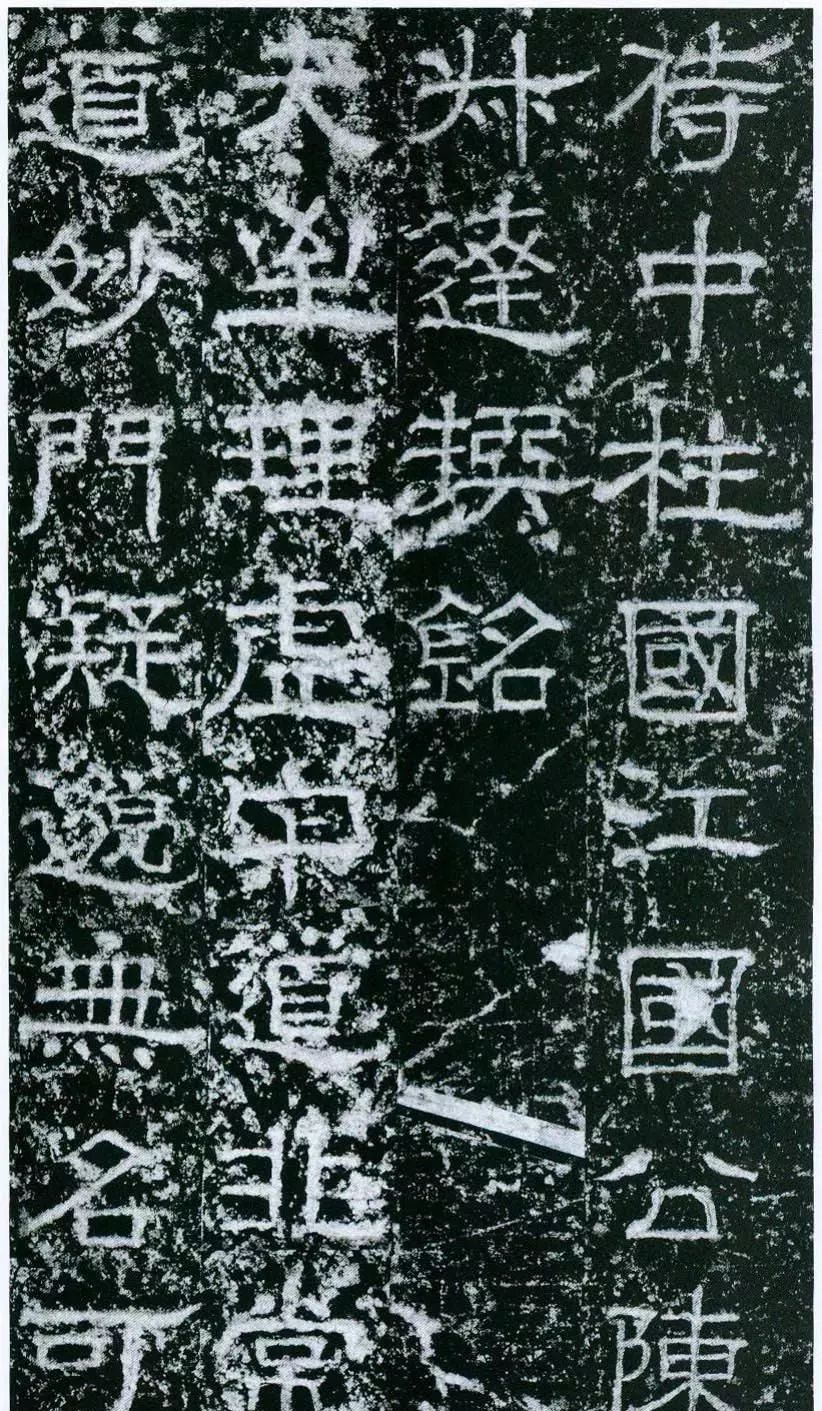 侍中柱國江國公陳
尗達撰銘
夫至理虛寂道非常
道妙門凝邈無名可